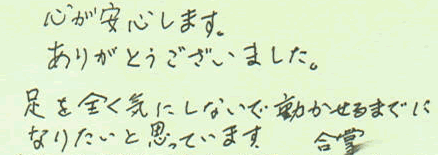 心が安心します。
ありがとうございました。
足を全く気にしないで動かせるまでに
なりたいと思っています 合掌